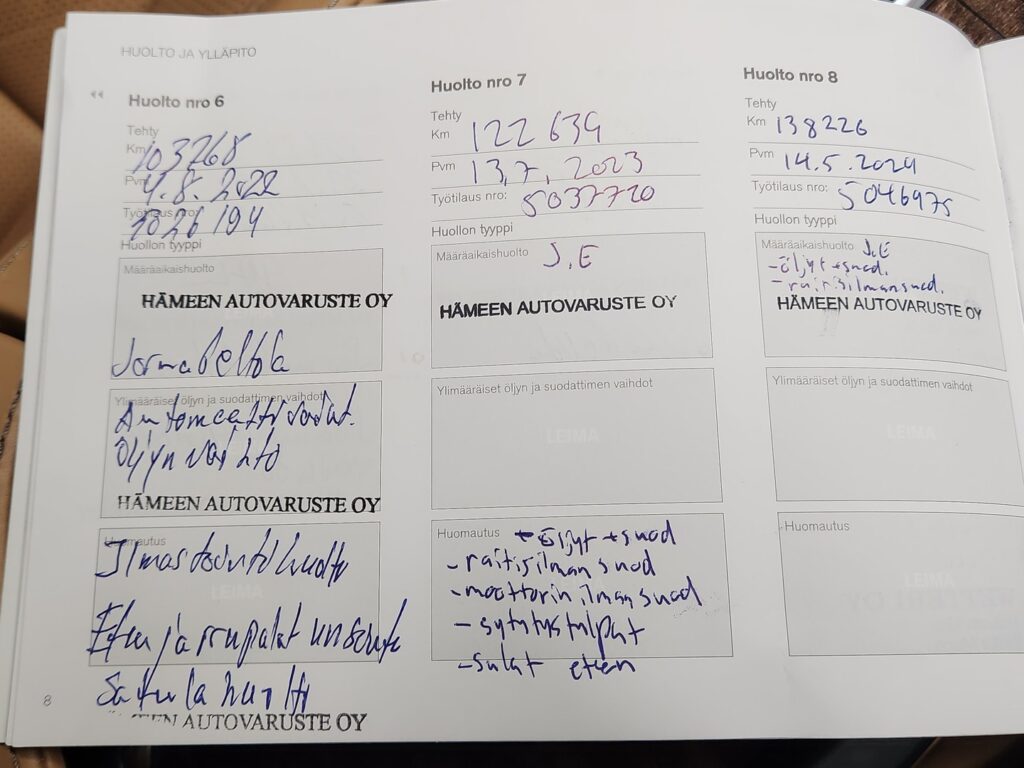 HUOLTO JA YLLÄPITO
Huolto nro 6
Tehty
Km 103268
Pvm 4.8.2022
Työtilaus nro: 1026194
Huollon tyyppi
Määräaikaishuolto
HÄMEEN AUTOVARUSTE OY
Jorma Peltola
Ylimääräiset öljyn ja suodattimen vaihdot
Automaattivaihd.
Öljyn vaihto
HÄMEEN AUTOVARUSTE OY
Huomautus
Ilmastointihuolto
LEIMA
Etu ja
Satula huolto
HÄMEEN AUTOVARUSTE OY
Huolto nro 7
Tehty
Km 122 639
Pvm 13.7.2023
Työtilaus nro: 5037720
Huollon tyyppi
Määräaikaishuolto J.E
HÄMEEN AUTOVARUSTE OY
Ylimääräiset öljyn ja suodattimen vaihdot
LEIMA
Huomautus - öljyt + suod
- raitisilman suod
- moottorin ilman suod
- sytytystulpat
- sulat eteen
Huolto nro 8
Tehty
Km 138226
Pvm 14.5.2024
Työtilaus nro: 5046975
Huollon tyyppi
Määräaikaishuolto J.E
- öljyt + suod.
- raitisilmansuod.
HÄMEEN AUTOVARUSTE OY
Ylimääräiset öljyn ja suodattimen vaihdot
LEIMA
Huomautus
LEIMA
8